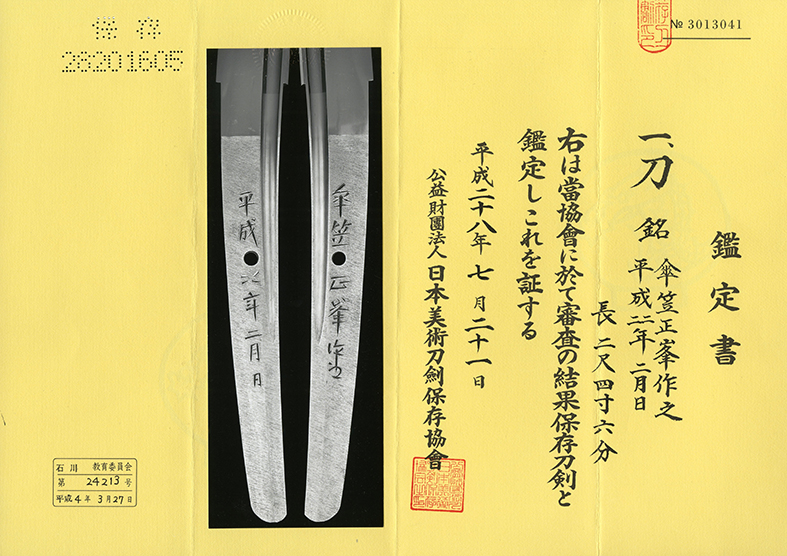 № 3013041
鑑定書
一、刀 銘 傘笠正峯作之
平成二年二月日
長二尺四寸六分
右は當協會に於て審査の結果保存刀剣と
鑑定しこれを証する
平成二十八年七月二十一日
公益財團法人日本美術刀劍保存協會
傘笠正峯作之
平成二年二月日
保存
28201605
石川 教育委員会
第 24213 号
平成4年3月27日